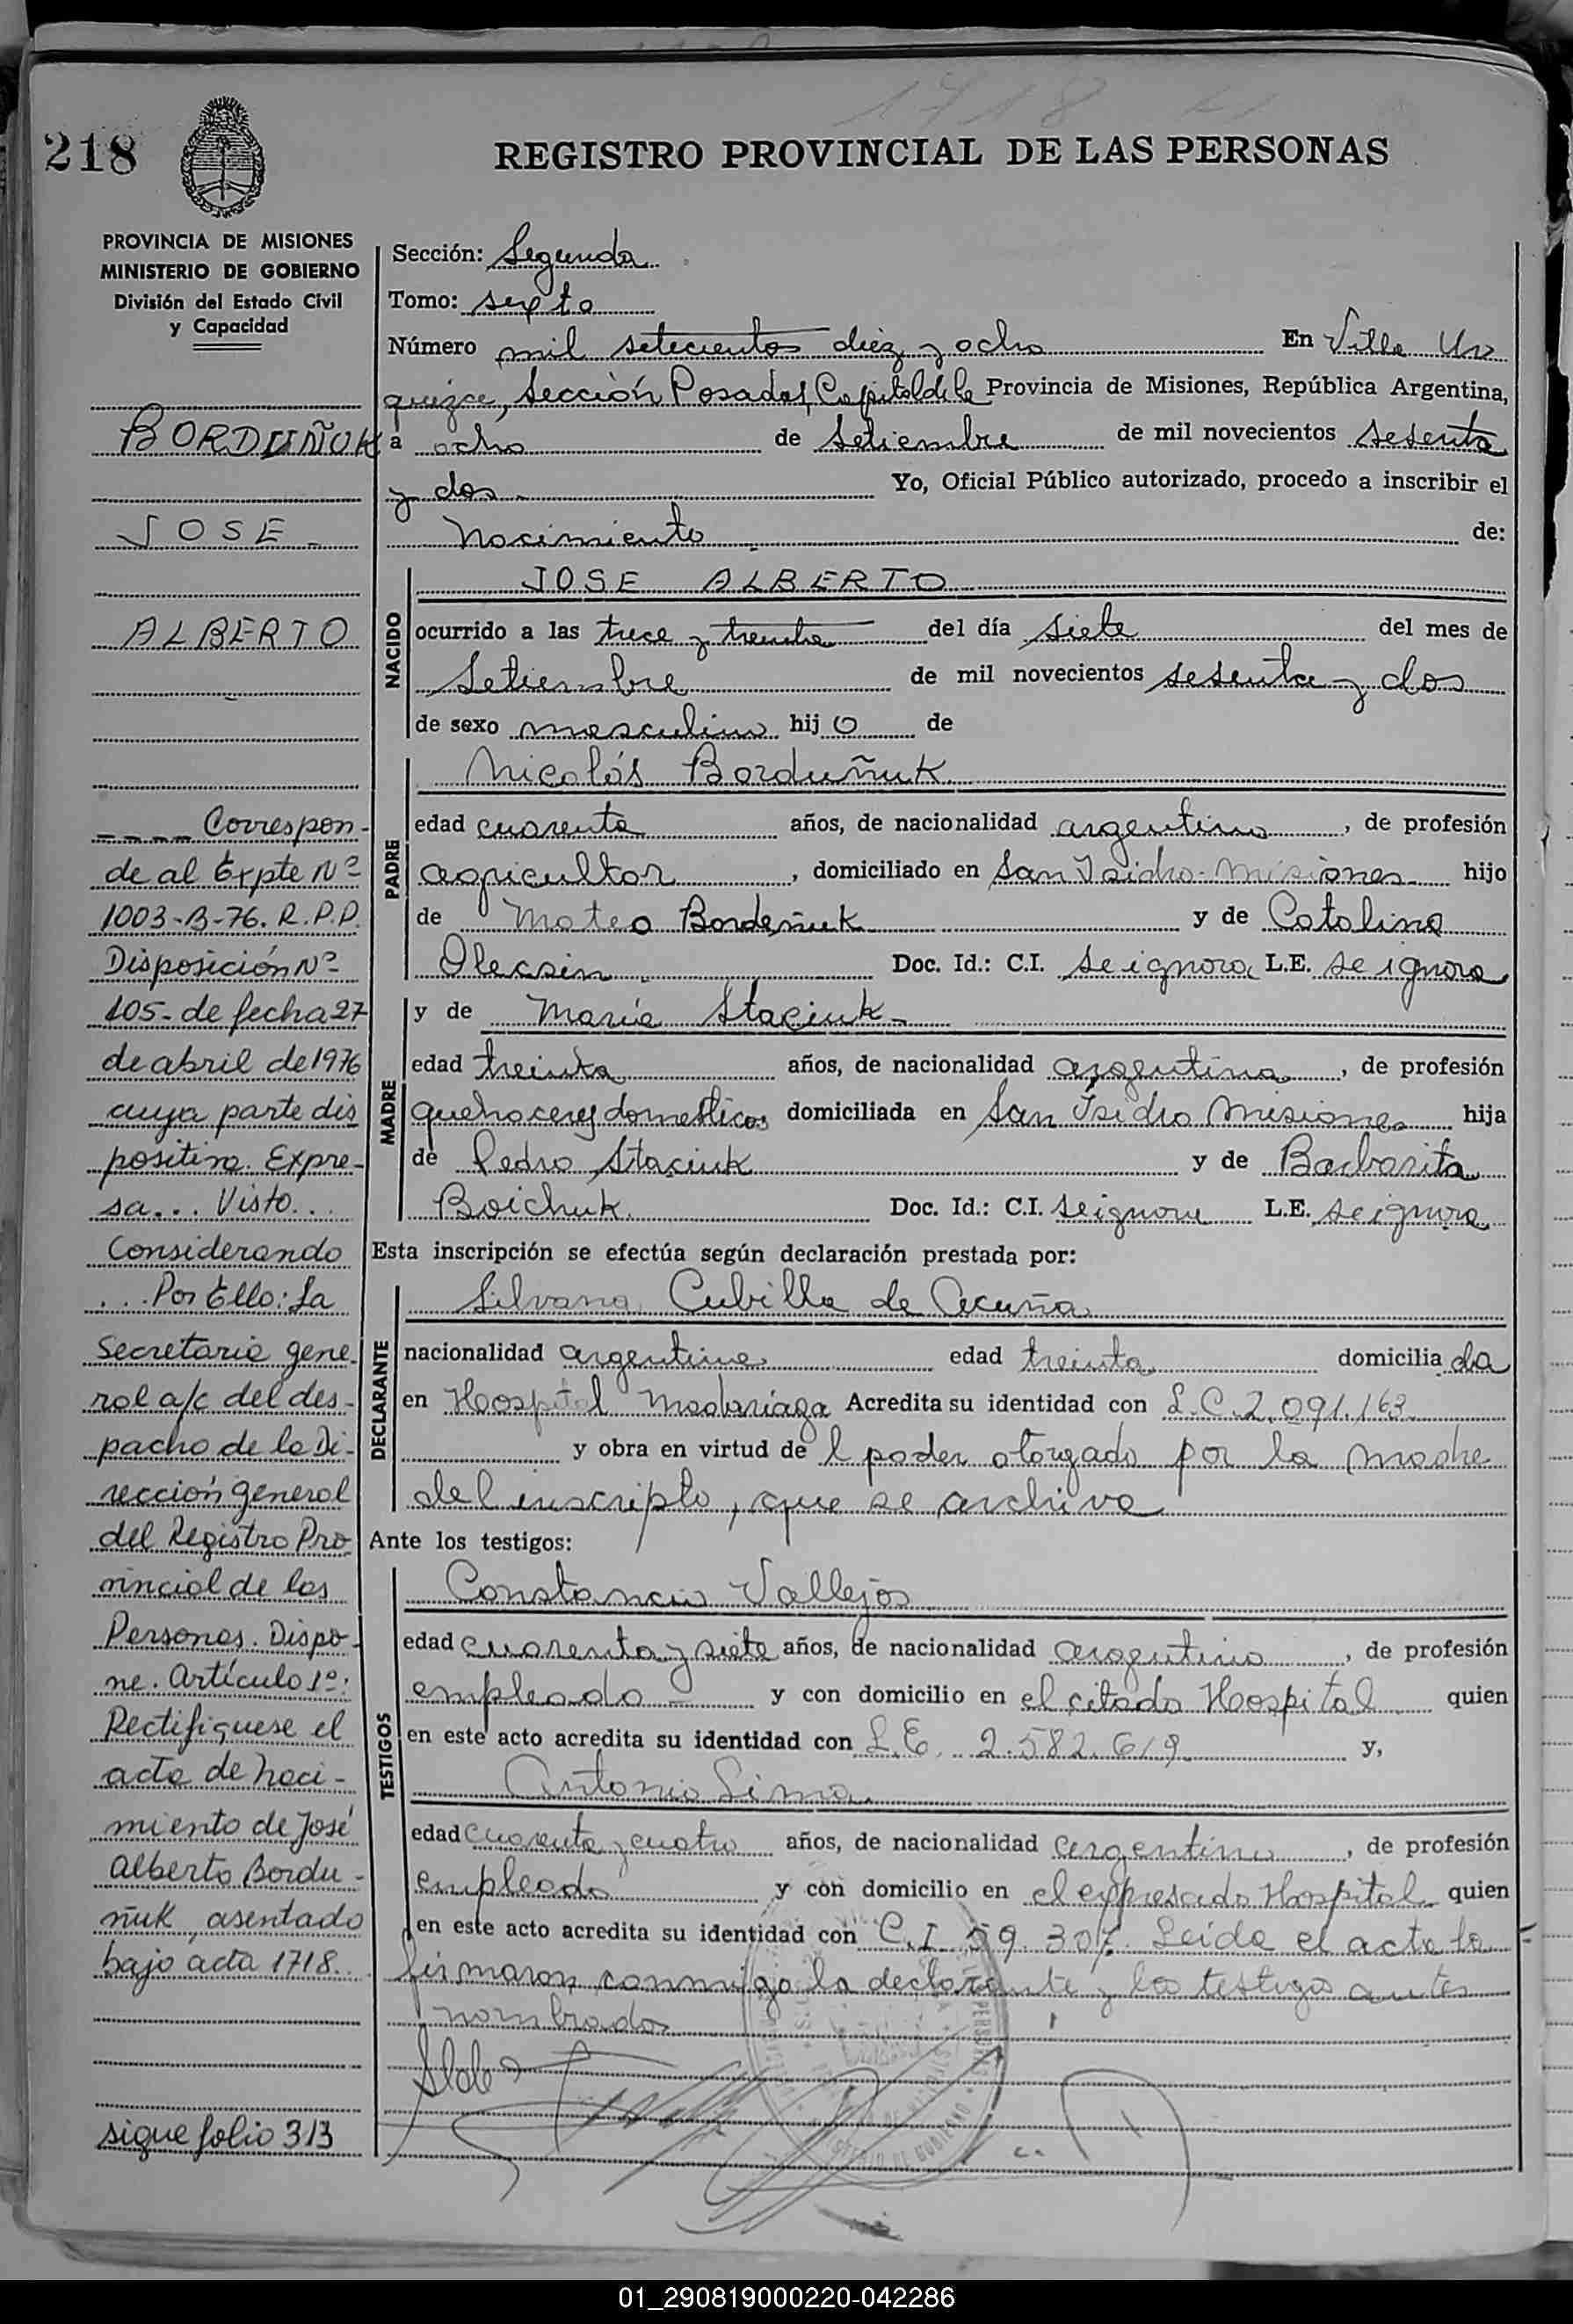 218
REGISTRO PROVINCIAL DE LAS PERSONAS
PROVINCIA DE MISIONES
MINISTERIO DE GOBIERNO
División del Estado Civil
y Capacidad
BORDUÑUK
JOSE -
ALBERTO
---- Correspon-
de al Expte Nº
1003-B-76. R.P.P.
Disposición Nº
105- de fecha 27
de abril de 1976
cuya parte dis
positiva. Expre-
sa... Visto...
Considerando
... Por Ello: La
Secretaria gene-
ral a/c del des-
pacho de la Di-
rección General
del Registro Pro
vincial de las
Personas. Dispo-
ne. Artículo 1º:
Rectifiquese el
acta de naci-
miento de José
Alberto Bordu-
ñuk, asentado
bajo acta 1718.
sigue folio 313
Sección: Segunda
Tomo: sexto
Número mil setecientos diez y ocho En Villa Ur
quiza, Sección Posadas, Capital de la Provincia de Misiones, República Argentina,
a ocho de Setiembre de mil novecientos sesenta
y dos. Yo, Oficial Público autorizado, procedo a inscribir el
Nacimiento de:
NACIDO
JOSE ALBERTO
ocurrido a las trece y treinta del día siete del mes de
Setiembre de mil novecientos sesenta y dos
de sexo masculino hijo de
PADRE
Nicolás Borduñuk
edad cuarenta años, de nacionalidad argentino, de profesión
agricultor, domiciliado en San Isidro-Misiones hijo
de Mateo Bordeñuk y de Catalina
Olecsin Doc. Id.: C.I. se ignora L.E. se ignora
MADRE
y de María Staciuk-
edad treinta años, de nacionalidad argentina, de profesión
quehaceres domesticos domiciliada en San Isidro Misiones hija
de Pedro Staciuk y de Barbarita
Boichuk Doc. Id.: C.I. se ignora L.E. se ignora
Esta inscripción se efectúa según declaración prestada por:
DECLARANTE
Silvana Cubilla de Acuña
nacionalidad argentina edad treinta domiciliada
en Hospital Madariaga Acredita su identidad con L.C. 2.091.163
y obra en virtud del poder otorgado por la madre
del inscripto, que se archiva
Ante los testigos:
TESTIGOS
Constancio Vallejos
edad cuarenta y siete años, de nacionalidad argentino, de profesión
empleado - y con domicilio en el citado Hospital quien
en este acto acredita su identidad con L.E. 2.582.619 y,
Antonio Lima
edad cuarenta y cuatro años, de nacionalidad argentino, de profesión
empleado y con domicilio en el expresado Hospital quien
en este acto acredita su identidad con C.I. 59.307. Leída el acta la
firmaron conmigo la declarante y los testigos antes
nombrados
01_290819000220-042286